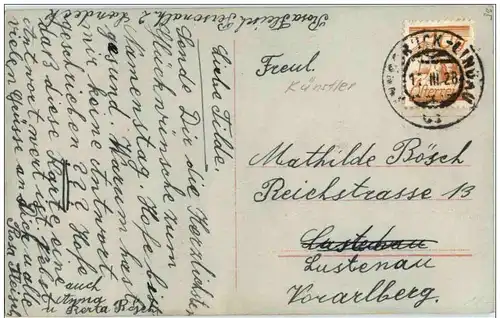 Rosa Fleisch Personalh. 2 Landeck
Liebe Tilde.
Sende Dir die Herzlichsten
Glückwünsche zum
Namenstag. Hofe bist
gesund. Warum hast
mir keine Antwort
geschrieben ??? Hofe
daß diese Karte eine
Antwort wert ist. Nebst
vielen Grüsse an Dich u. alle
Rosa Fleisch
auch
u. Berta Bösch
INNSBRUCK-LINDAU
17.III.28
Freul.
Künstler
Mathilde Bösch
Reichstrasse 13
Lustenau
Lustenau
Vorarlberg.